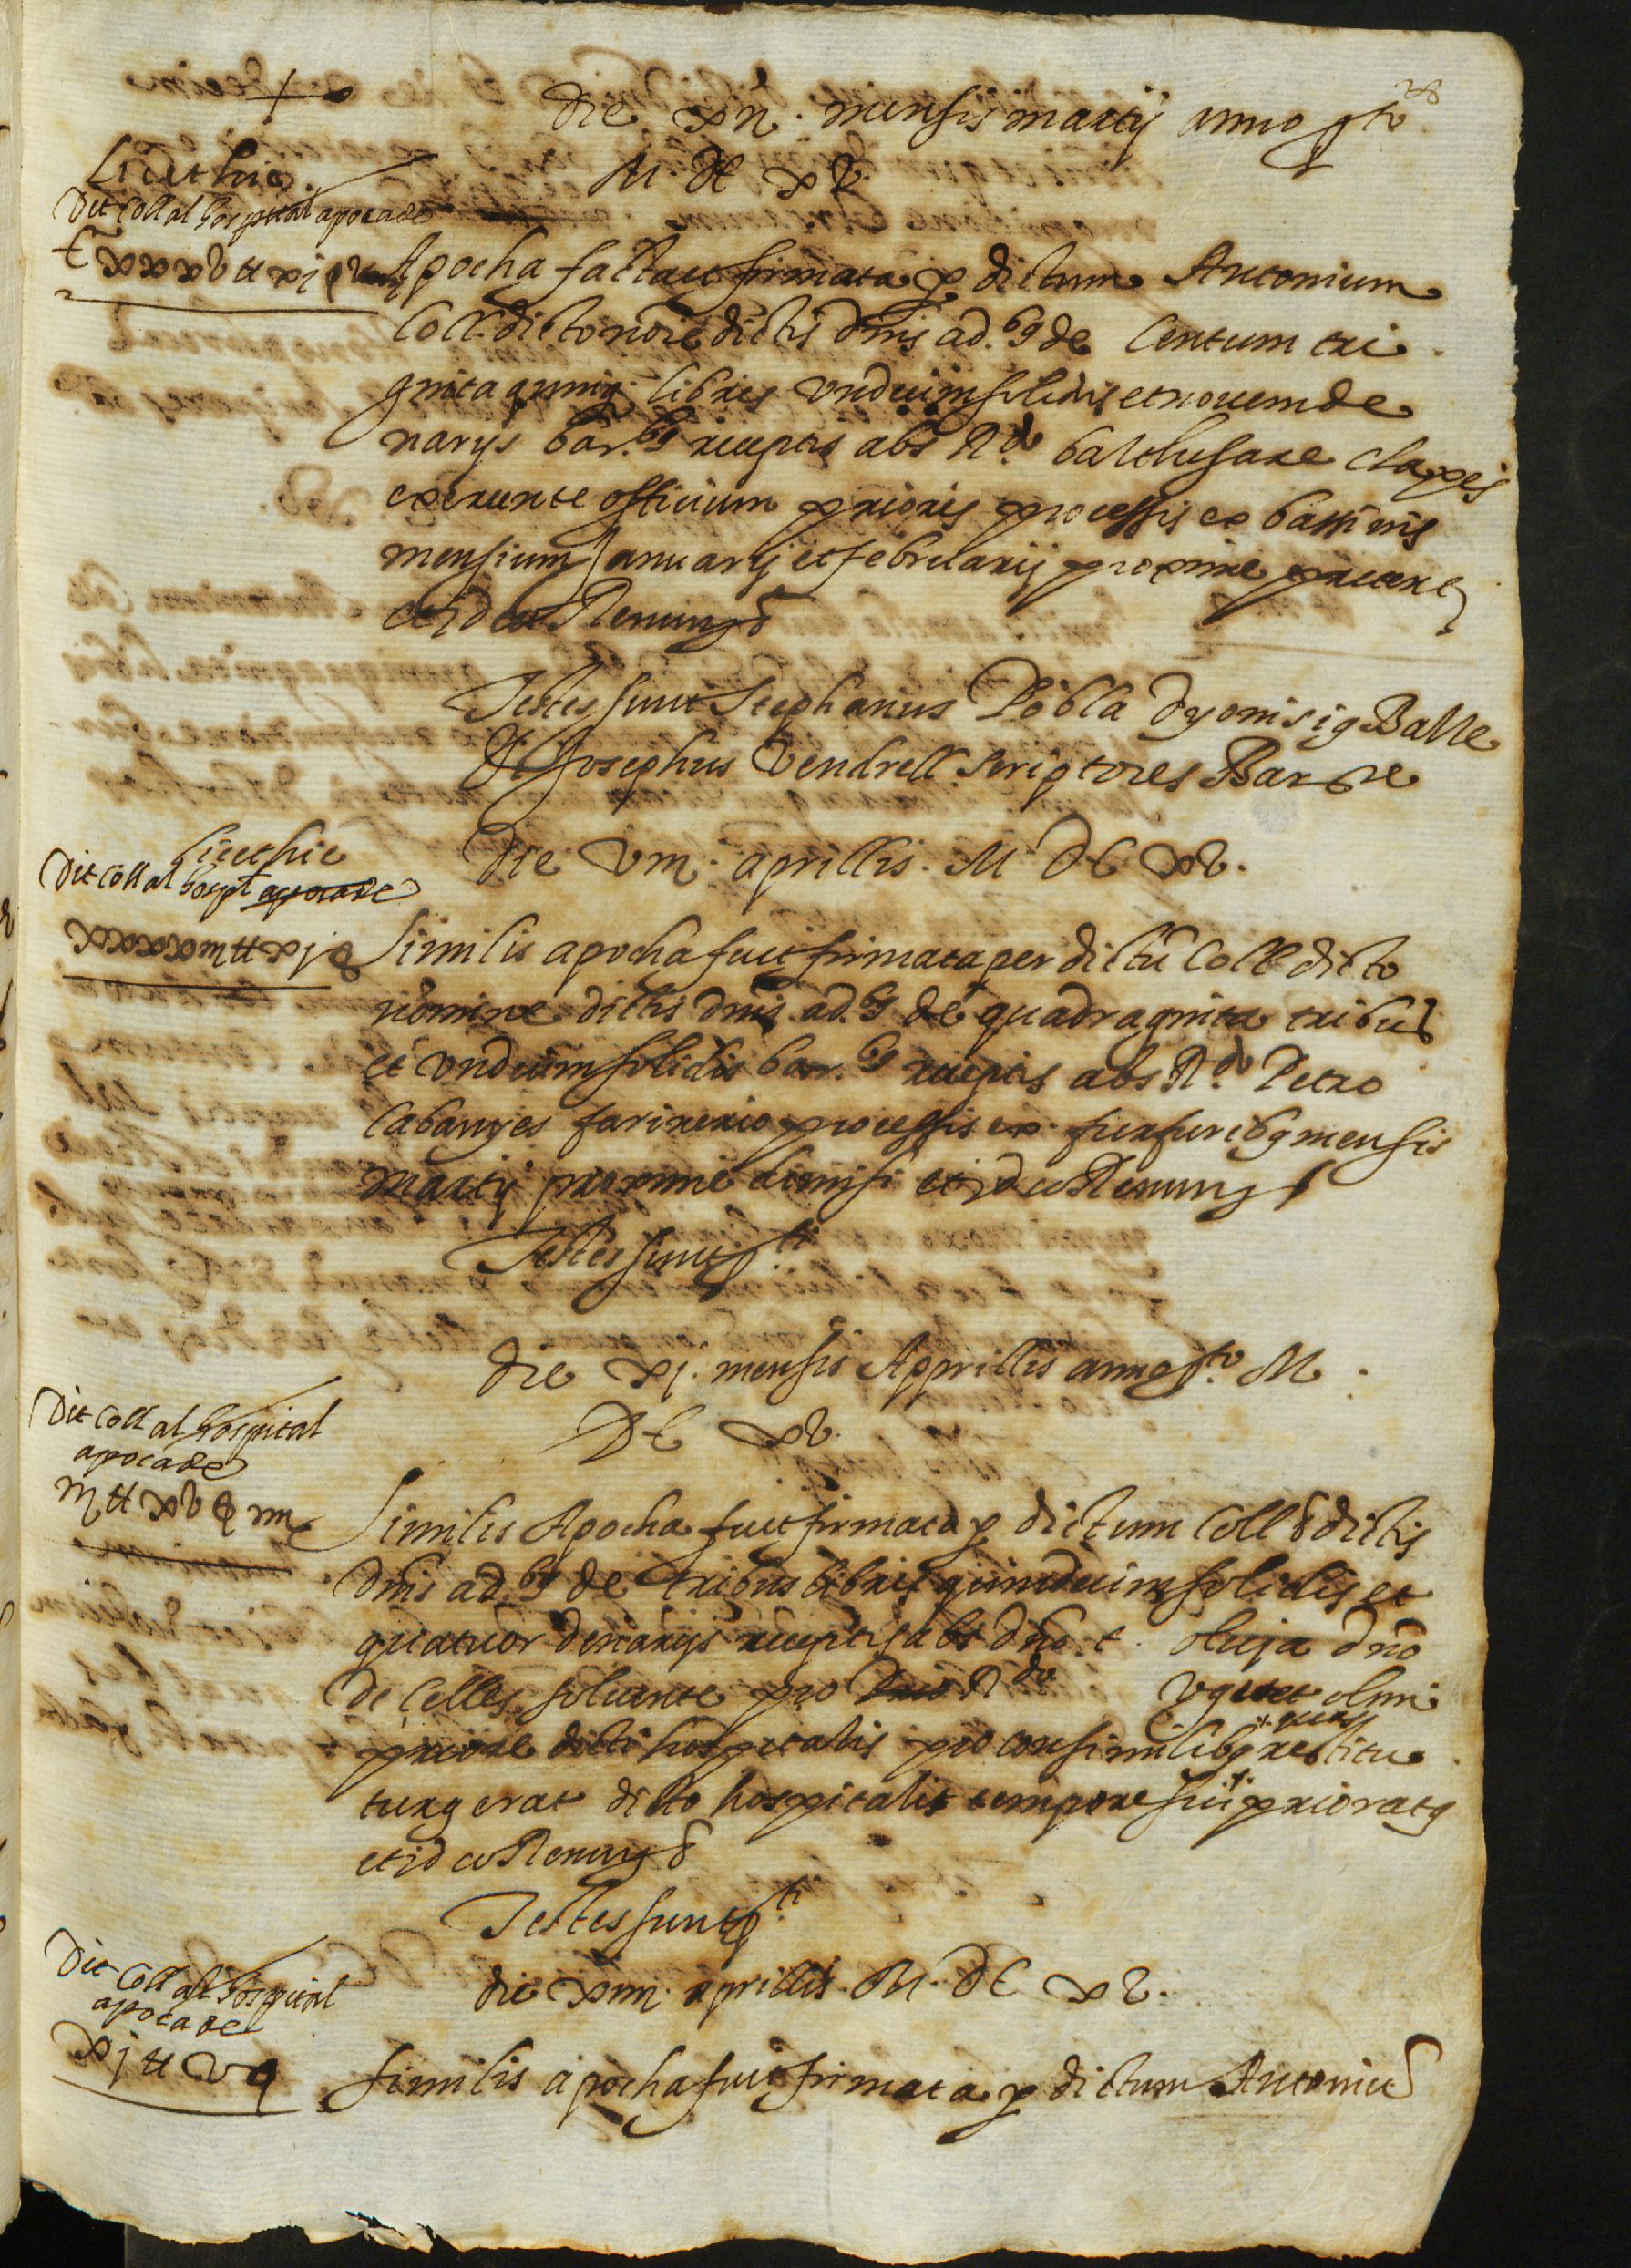 28
die xii. mensis martij anno pto
M DC xv.
Licet hic.
Dit Coll al hospital apoca de
Cxxxv ll xj s viiij
Apocha facta et firmata p dictum Antonium
Coll dicto noie dictis dnis ad.bs de Centum tri
ginta quinq libris undecim solidis et novem de
narijs bar.bs receptis abs Rdo balthasare Clapes
exerente officium prioris processis ex bassinis
mensium Januarij et februarij proxime preterit
et ideo Renuncs
Testes sunt Stephanus Pobla dyonisiq Balle
et Josephus Vendrell scriptores Barne
die viii. aprillis. M DC xv.
Licet hic
Dit Coll al hospl apoca de
xxxxiii ll xj s
Similis apocha fuit firmata per dictu Coll dicto
nomine dictis dnis ad.bs de quadraginta tribus
et undecim solidis bar.bs receptis abs Rdo Petro
Cabanyes farinerio processis ex furfuribq mensis
martij proxime dimisi et ideo Renuncs
Testes sunt pti
die xj. mensis Apprillis anno pto M
DC xv.
Dit Coll al hospital
apoca de
iii ll xv s iiii
Similis Apocha fuit firmata p dictum Coll d dictis
dnis ad.bs de tribus libris quindecim solidis et
quatuor denarijs receptis abs dno t. oluja dno
de Celles solvente pro Rdo Uguet olim
priore dicti hospitalis pro consimilibq quas restitu
turq erat dicto hospitali tempore sui prioratq
et ideo Renuncs
Testes sunt pti
die xiiii. aprillis. M. DC xv.
Dit Coll al hospital
apoca de
xj ll v s
Similis apocha fuit firmata p dictum Antoniu